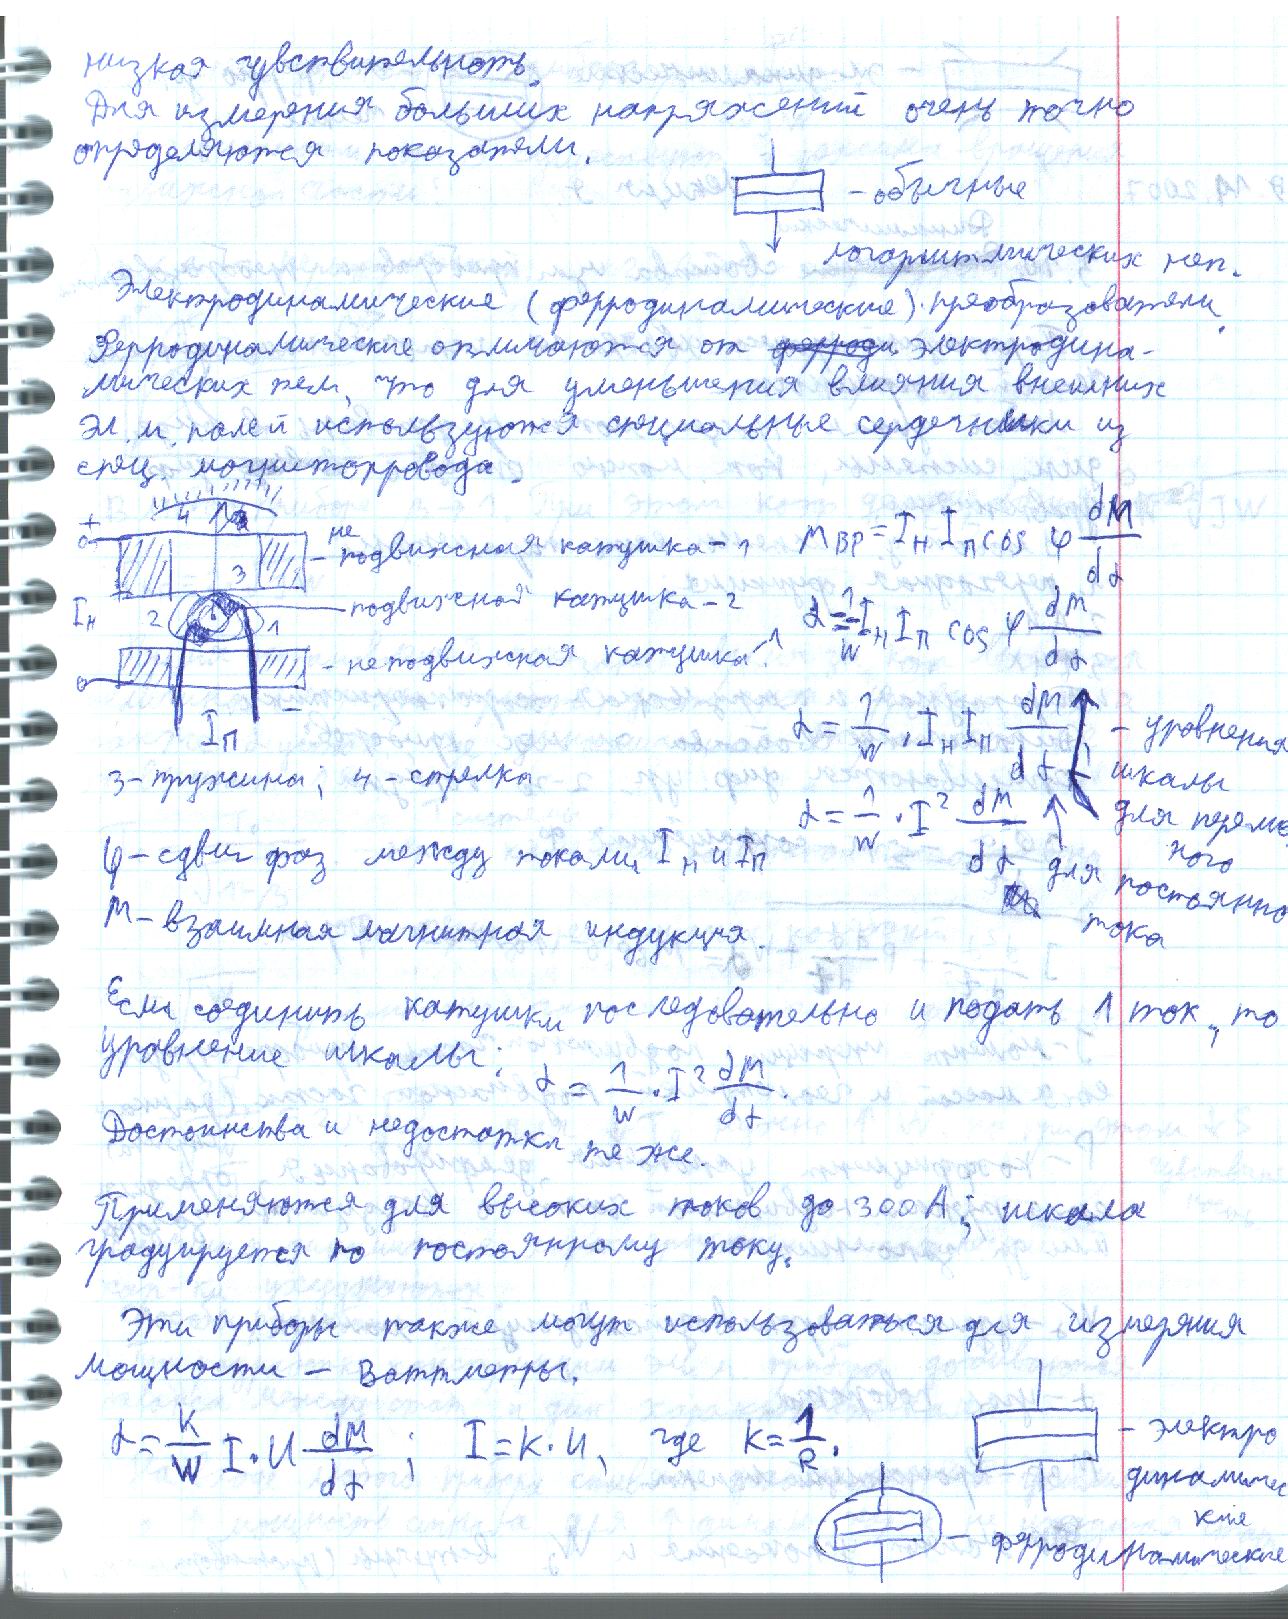 низкая чувствительность.
Для измерения больших напряжений очень точно
определяются показатели.
- обычные
логоритмических неп.
Электродинамические (ферродинамические) преобразователи.
Ферродинамические отличаются от ферроди электродина-
мических тем, что для уменьшения влияния внешних
эл.м. полей используются специальные сердечники из
спец. магнитопровода.
4
+
- неподвижная катушка - 1
Mвр = Iн Iп cos φ dM/dα
3
Iн
2
1
- подвижная катушка - 2
α = 1/W Iн Iп cos φ dM/dα
- неподвижная катушка 1
-
Iп
α = 1/W · Iн Iп dM/dα - уровнения
шкалы
3 - пружина; 4 - стрелка
α = 1/W · I² dM/dα
для переме
ного
φ - сдвиг фаз между токами Iн и Iп
для постоянно
тока
M - взаимная магнитная индукция.
Если соединить катушки последовательно и подать 1 ток, то
уровнение шкалы:
α = 1/W · I² dM/dα.
Достоинства и недостатки те же.
Применяются для высоких токов до 300 А; шкала
градуируется по постоянному току.
Эти приборы также могут использоваться для измерения
мощности - Ваттметры.
α = K/W I · U dM/dα ; I = K · U, где K = 1/R.
- электро
динамичес
кие
- ферродинамические